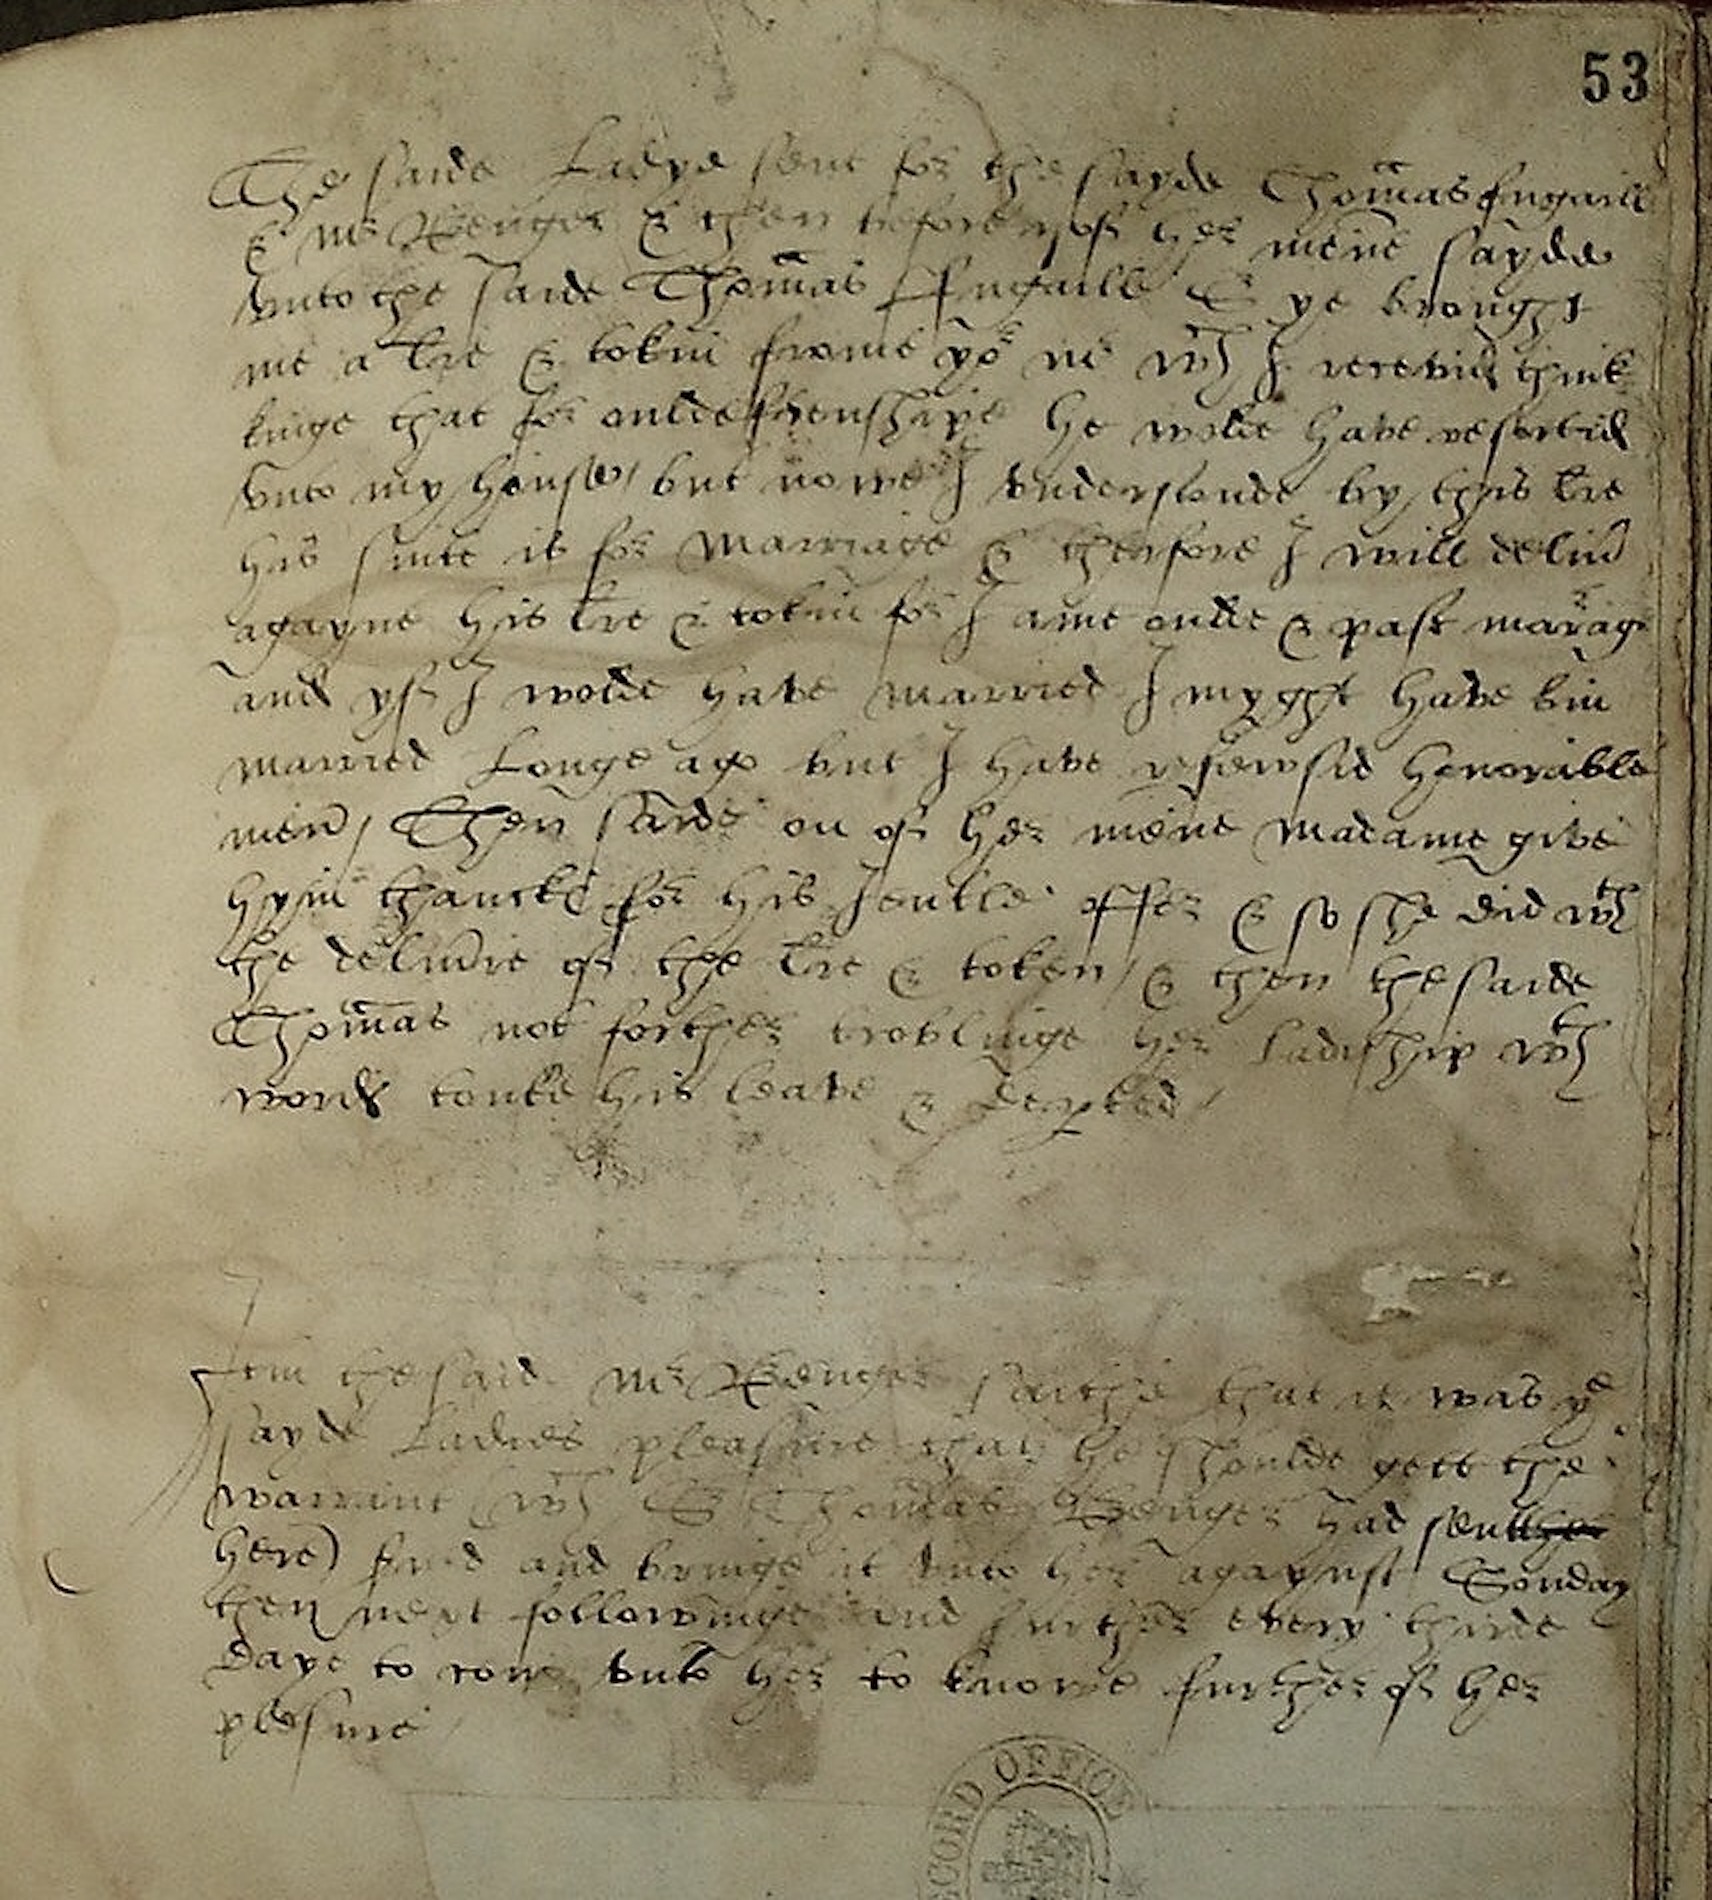 53
The saide Ladye sent for the sayde Thomas Fugaill
& mr Benger & then before of her mene sayde
vnto the saide Thomas Fugaill ye brought
me a lre & tokin frome yor mr wch I recevid think
kinge that for oulde frenshipe he wolde have resortid
vnto my house / but nowe I vnderstonde by this lre
his sute is for marriage & therfore I will deliu
agayne his lre & tokin for I ame oulde & past marrag
and yf I wolde have married I myght have bin
married Longe ago but I have refewsid honorable
men / Then saide on of her mene madame give
hym thanckes for his Jentle offer & so she did wth
the deliurie of the lre & token / & then the saide
Thomas not forther troblinge her ladiship wth
words touke his leave & depted /
Itm the said mr Benger saithe that it was ye
sayde Ladies pleasure that he shoulde gett the
warrant (wch Sr Thomas Benger had sent her
here) and bringe it vnto her agaynst Sonday
then next followinge and further every thirde
daye to come vnto her to knowe further of her
plesure
RECORD OFFICE